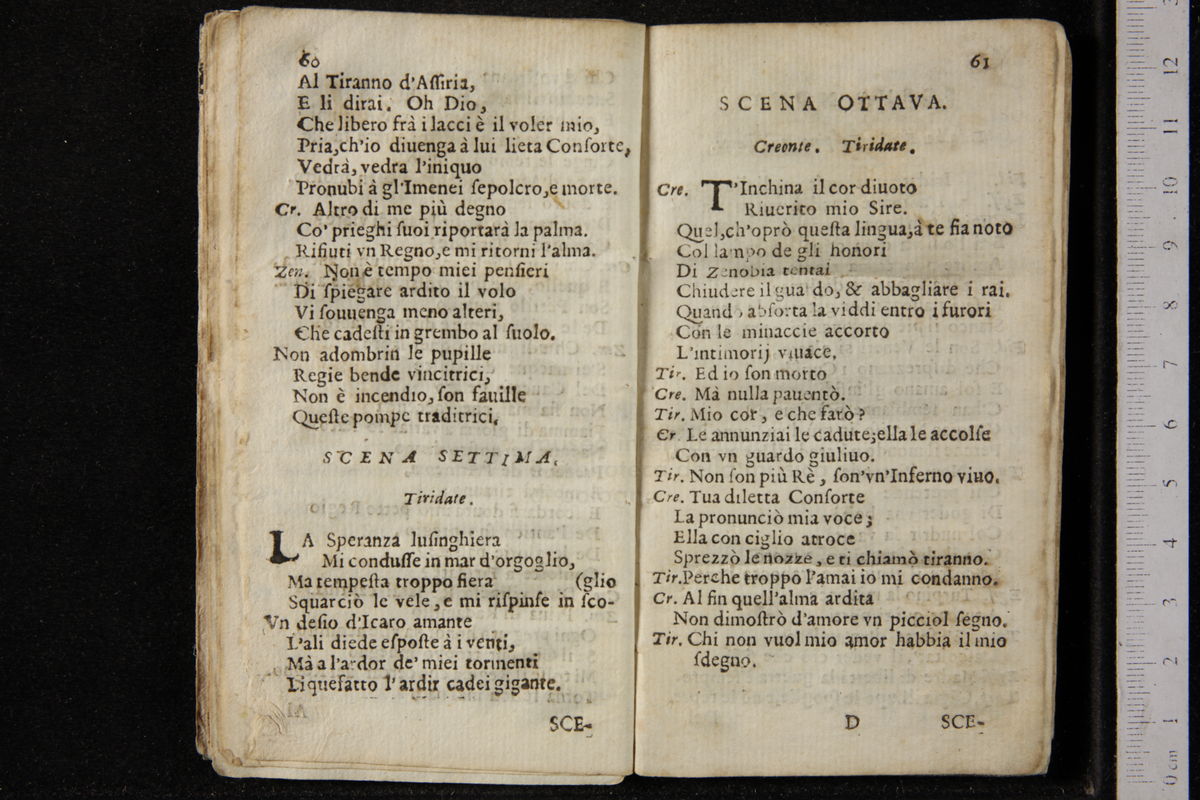 60
Al Tiranno d'Aſſiria,
E li dirai. Oh Dio,
Che libero frà i lacci è il voler mio,
Pria,ch'io diuenga à lui lieta Conſorte,
Vedrà, vedra l'iniquo
Pronubi à gl'Imenei ſepolcro,e morte.
Cr. Altro di me più degno
Co' prieghi ſuoi riportarà la palma.
Rifiuti vn Regno,e mi ritorni l'alma.
Zen. Non è tempo miei penſieri
Di ſpiegare ardito il volo
Vi ſouuenga meno alteri,
Che cadeſti in grembo al ſuolo.
Non adombrin le pupille
Regie bende vincitrici,
Non è incendio, ſon fauille
Queſte pompe traditrici.
SCENA SETTIMA.
Tiridate.
LA Speranza luſinghiera
Mi conduſſe in mar d'orgoglio,
Ma tempeſta troppo fiera (glio
Squarciò le vele, e mi riſpinſe in ſco-
Vn deſio d'Icaro amante
L'ali diede eſpoſte à i venti,
Mà a l'ardor de' miei tormenti
Liquefatto l'ardir cadei gigante.
SCE-
61
SCENA OTTAVA.
Creonte. Tiridate.
Cre. T'Inchina il cor diuoto
Riuerito mio Sire.
Quel,ch'oprò queſta lingua,à te fia noto
Col lampo de gli honori
Di Zenobia tentai
Chiudere il guardo, & abbagliare i rai.
Quando abſorta la viddi entro i furori
Con le minaccie accorto
L'intimorij viuace.
Tir. Ed io ſon morto
Cre. Mà nulla pauentò.
Tir. Mio cor, e che farò?
Cr. Le annunziai le cadute;ella le accolſe
Con vn guardo giuliuo.
Tir. Non ſon più Rè, ſon'vn'Inferno viuo.
Cre. Tua diletta Conſorte
La pronunciò mia voce;
Ella con ciglio atroce
Sprezzò le nozze, e ti chiamò tiranno.
Tir.Perche troppo l'amai io mi condanno.
Cr. Al fin quell'alma ardita
Non dimoſtrò d'amore vn picciol ſegno.
Tir. Chi non vuol mio amor habbia il mio
ſdegno.
D SCE-
0 cm 1 2 3 4 5 6 7 8 9 10 11 12